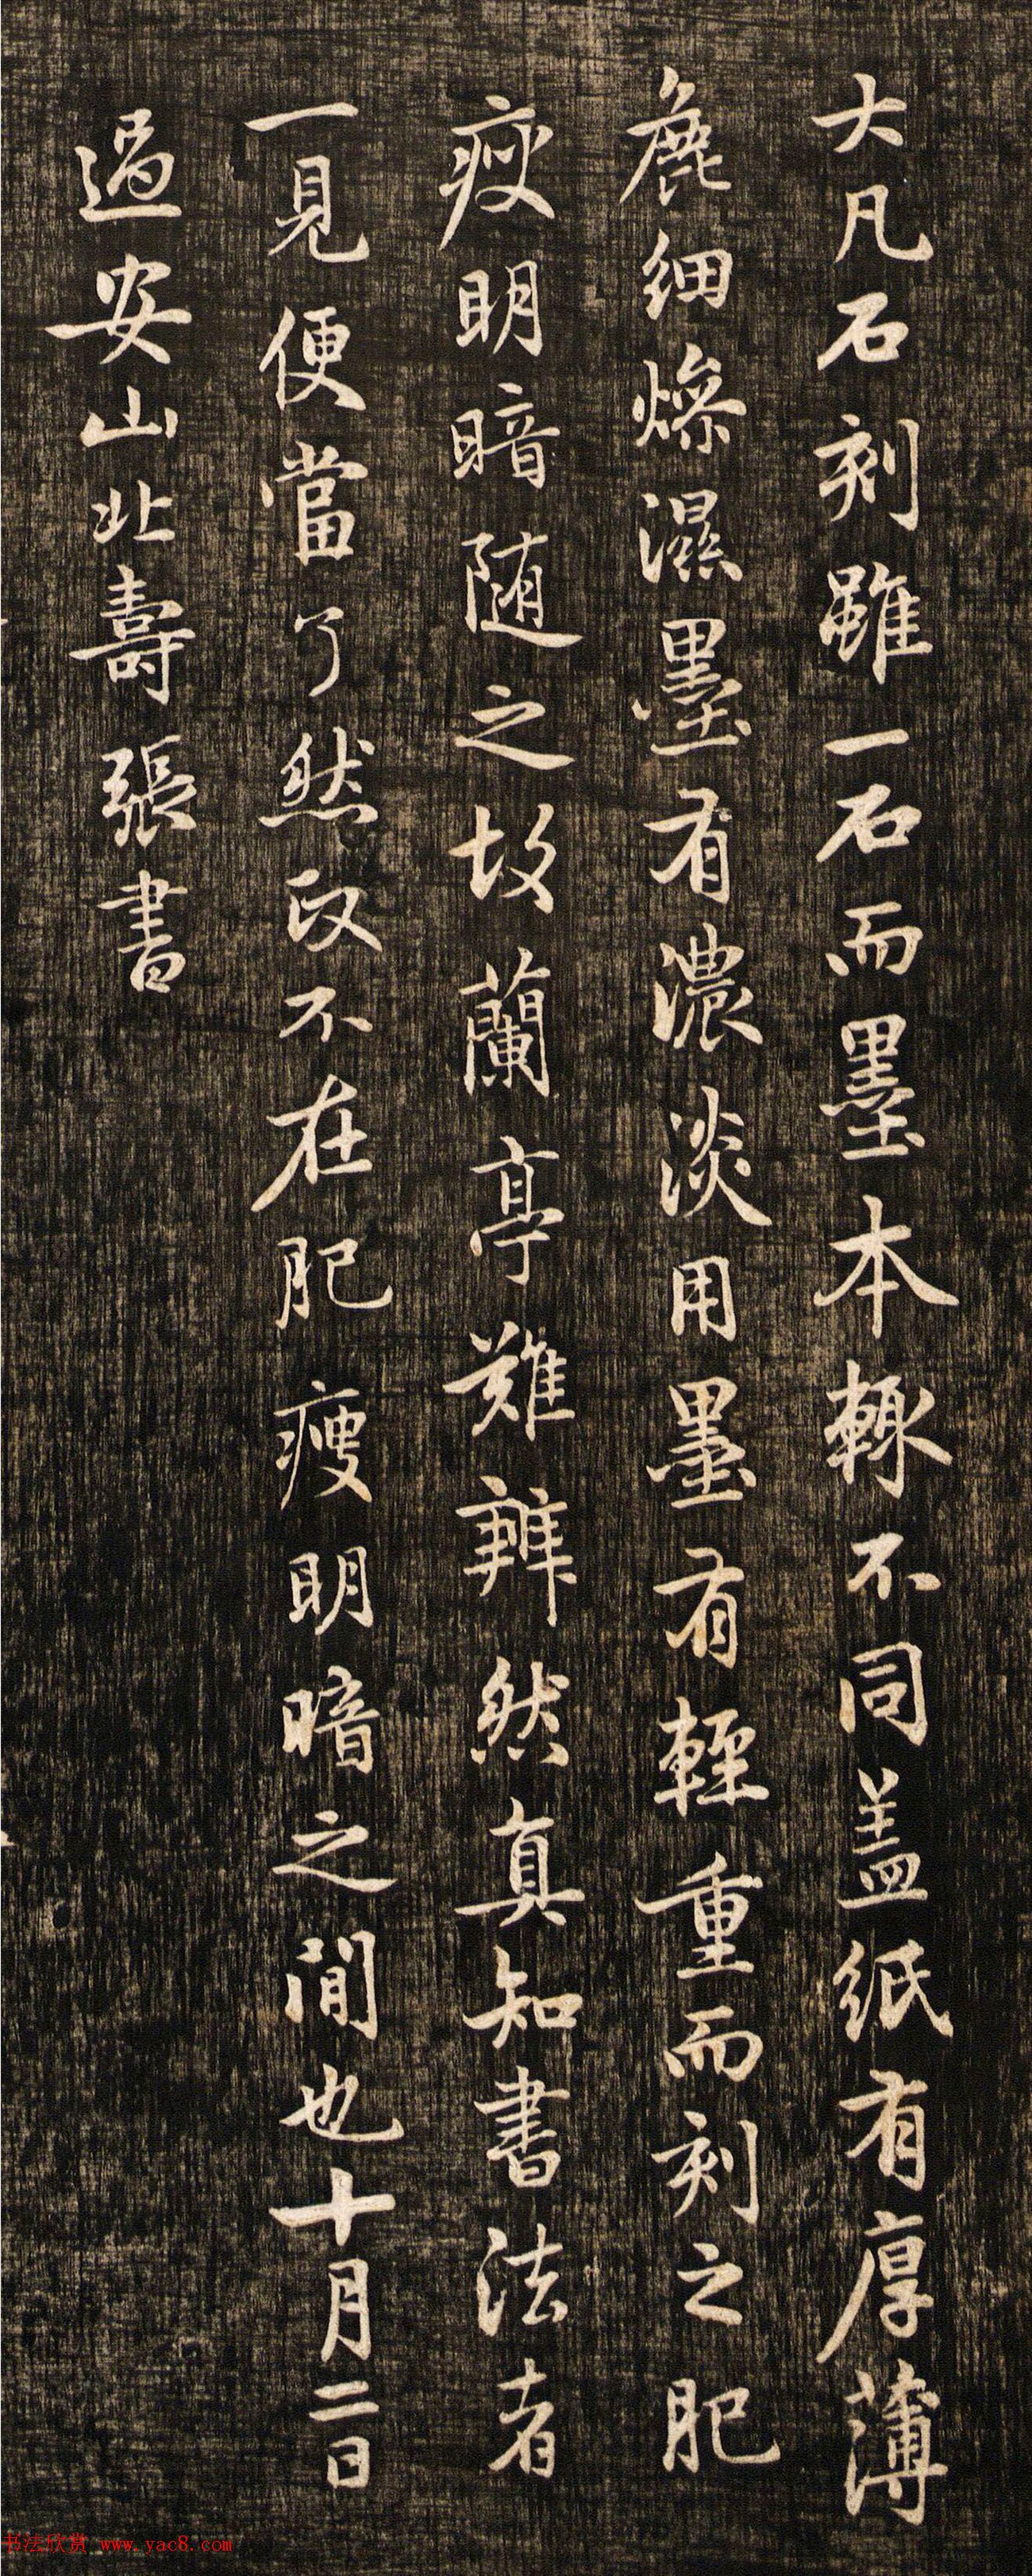 大凡石刻雖一石而墨本輒不同盖紙有厚薄
麤細燥濕墨有濃淡用墨有輕重而刻之肥
瘦明暗随之故蘭亭難辨然真知書法者
一見便當了然政不在肥瘦明暗之間也十月二日
過安山北壽張書
书法欣赏 www.yac8.com